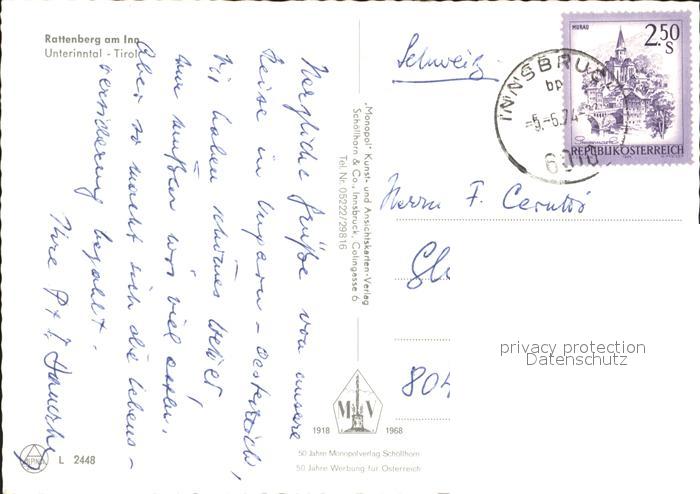 Rattenberg am Inn
Unterinntal - Tirol
Herzliche Grüße von unserer
Reise in Ungarn - Oesterreich,
Wir haben schönes Wetter!
nur müssen wir viel essen.
Aber so macht sich die Lebens-
versicherung bezahlt.
Ihre P + J.
L 2448
„Monopol" Kunst- und Ansichtskarten-Verlag
Schöllhorn & Co., Innsbruck, Colingasse 6
Tel. Nr. 05222/29816
M V
1918 1968
50 Jahre Monopolverlag Schöllhorn
50 Jahre Werbung für Österreich
MURAU
2.50
S
REPUBLIK ÖSTERREICH
INNSBRUCK
-5.-6.74-
6010
Schweiz
Herrn F. Cerutti
804
privacy protection
Datenschutz